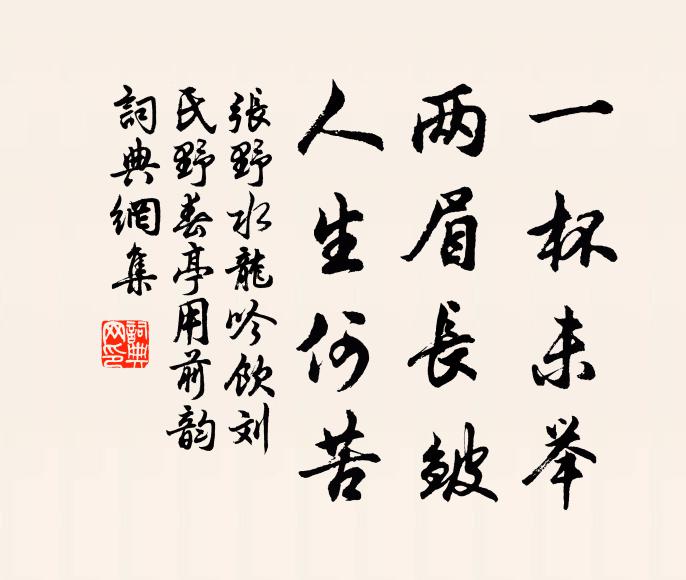 一杯未举
两眉長皱
人生何苦
張野水龍吟饮刘
民野春亭用前韵
詞典網集
詞典
网印